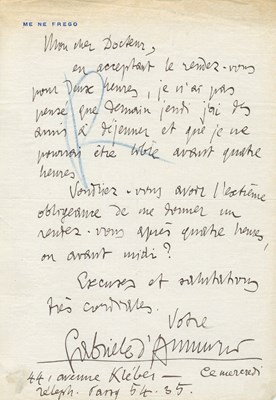 ME NE FREGO
Mon cher Docteur,
en acceptant le rendez-vous
pour deux heures, je n'ai pas
pensé que demain jeudi j'ai des
amis à déjeuner et que je ne
pourrai être libre avant quatre
heures.
Voudriez-vous avoir l'extrême
obligeance de me donner un
rendez-vous après quatre heures,
ou avant midi?
Excuses et salutations
très cordiales.
Votre
Gabriele d'Annunzio
44, avenue Kléber —
Ce mercredi
Téléph. Passy 54-35.